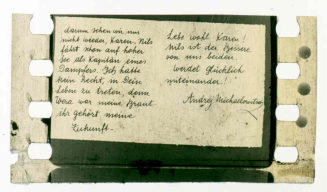 darum sehen wir uns
nicht wieder, Karen. Nils
fährt schon auf hoher
See als Kapitän eines
Dampfers. Ich hatte
kein Recht, in Dein
Leben zu treten, denn
Wera war meine Braut
ihr gehört meine
Zukunft.
Lebe wohl Karen!
Nils ist der Bessere
von uns beiden.
werdet glücklich
miteinander!
Andrej Michaelowitsch